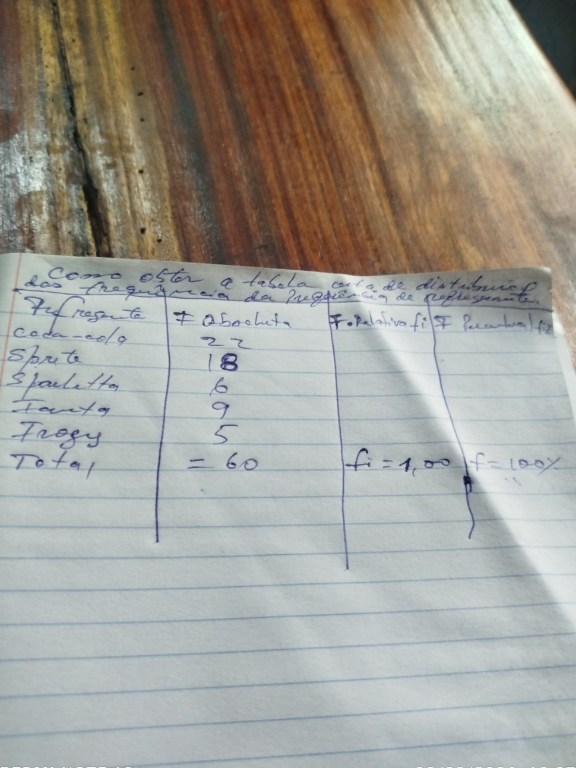 Como obter a tabela de distribuição
das frequência da frequência de refrigerante
Refresante F Absoluta F. Relativa fi F Percentual fi
coca-cola 22
Sprite 18
Sparletta 6
Fanta 9
Frozy 5
Total = 60 fi = 1,00 f = 100%